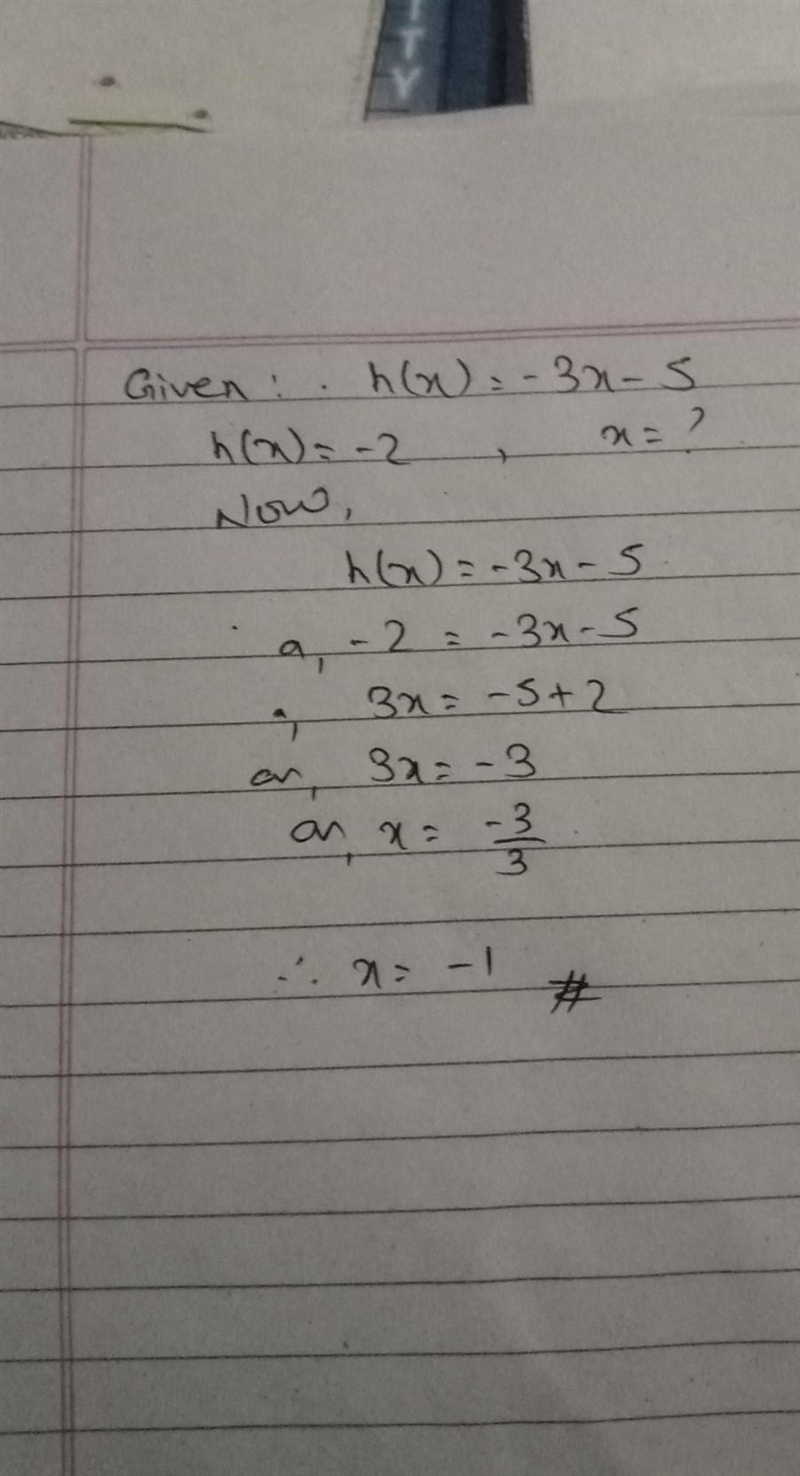 ITY
Given: . h(x) = -3x - 5
h(x) = -2 , x = ?
Now,
h(x) = -3x - 5
or, -2 = -3x - 5
or, 3x = -5+2
or, 3x = -3
or, x = -3/3
∴ x = -1 #